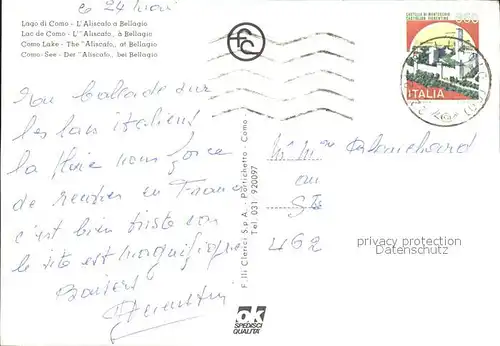 Lago di Como - L'Aliscafo a Bellagio
Lac de Come - L'"Aliscafo, à Bellagio
Como Lake - The "Aliscafo, at Bellagio
Como-See - Der "Aliscafo, bei Bellagio
CASTELLO DI MONTECCHIO
CASTIGLION FIORENTINO
ITALIA
le 24 Mai
ballade sur
les lacs italiens
la pluie nous force
de rentrer en France
c'est bien triste car
le site est magnifique
Baisers
Mr Mme Blanchard
462
F.lli Clerici S.p.A. - Portichetto - Como
Tel. 031 920097
privacy protection
Datenschutz
ok
SPEDISCI
QUALITA'